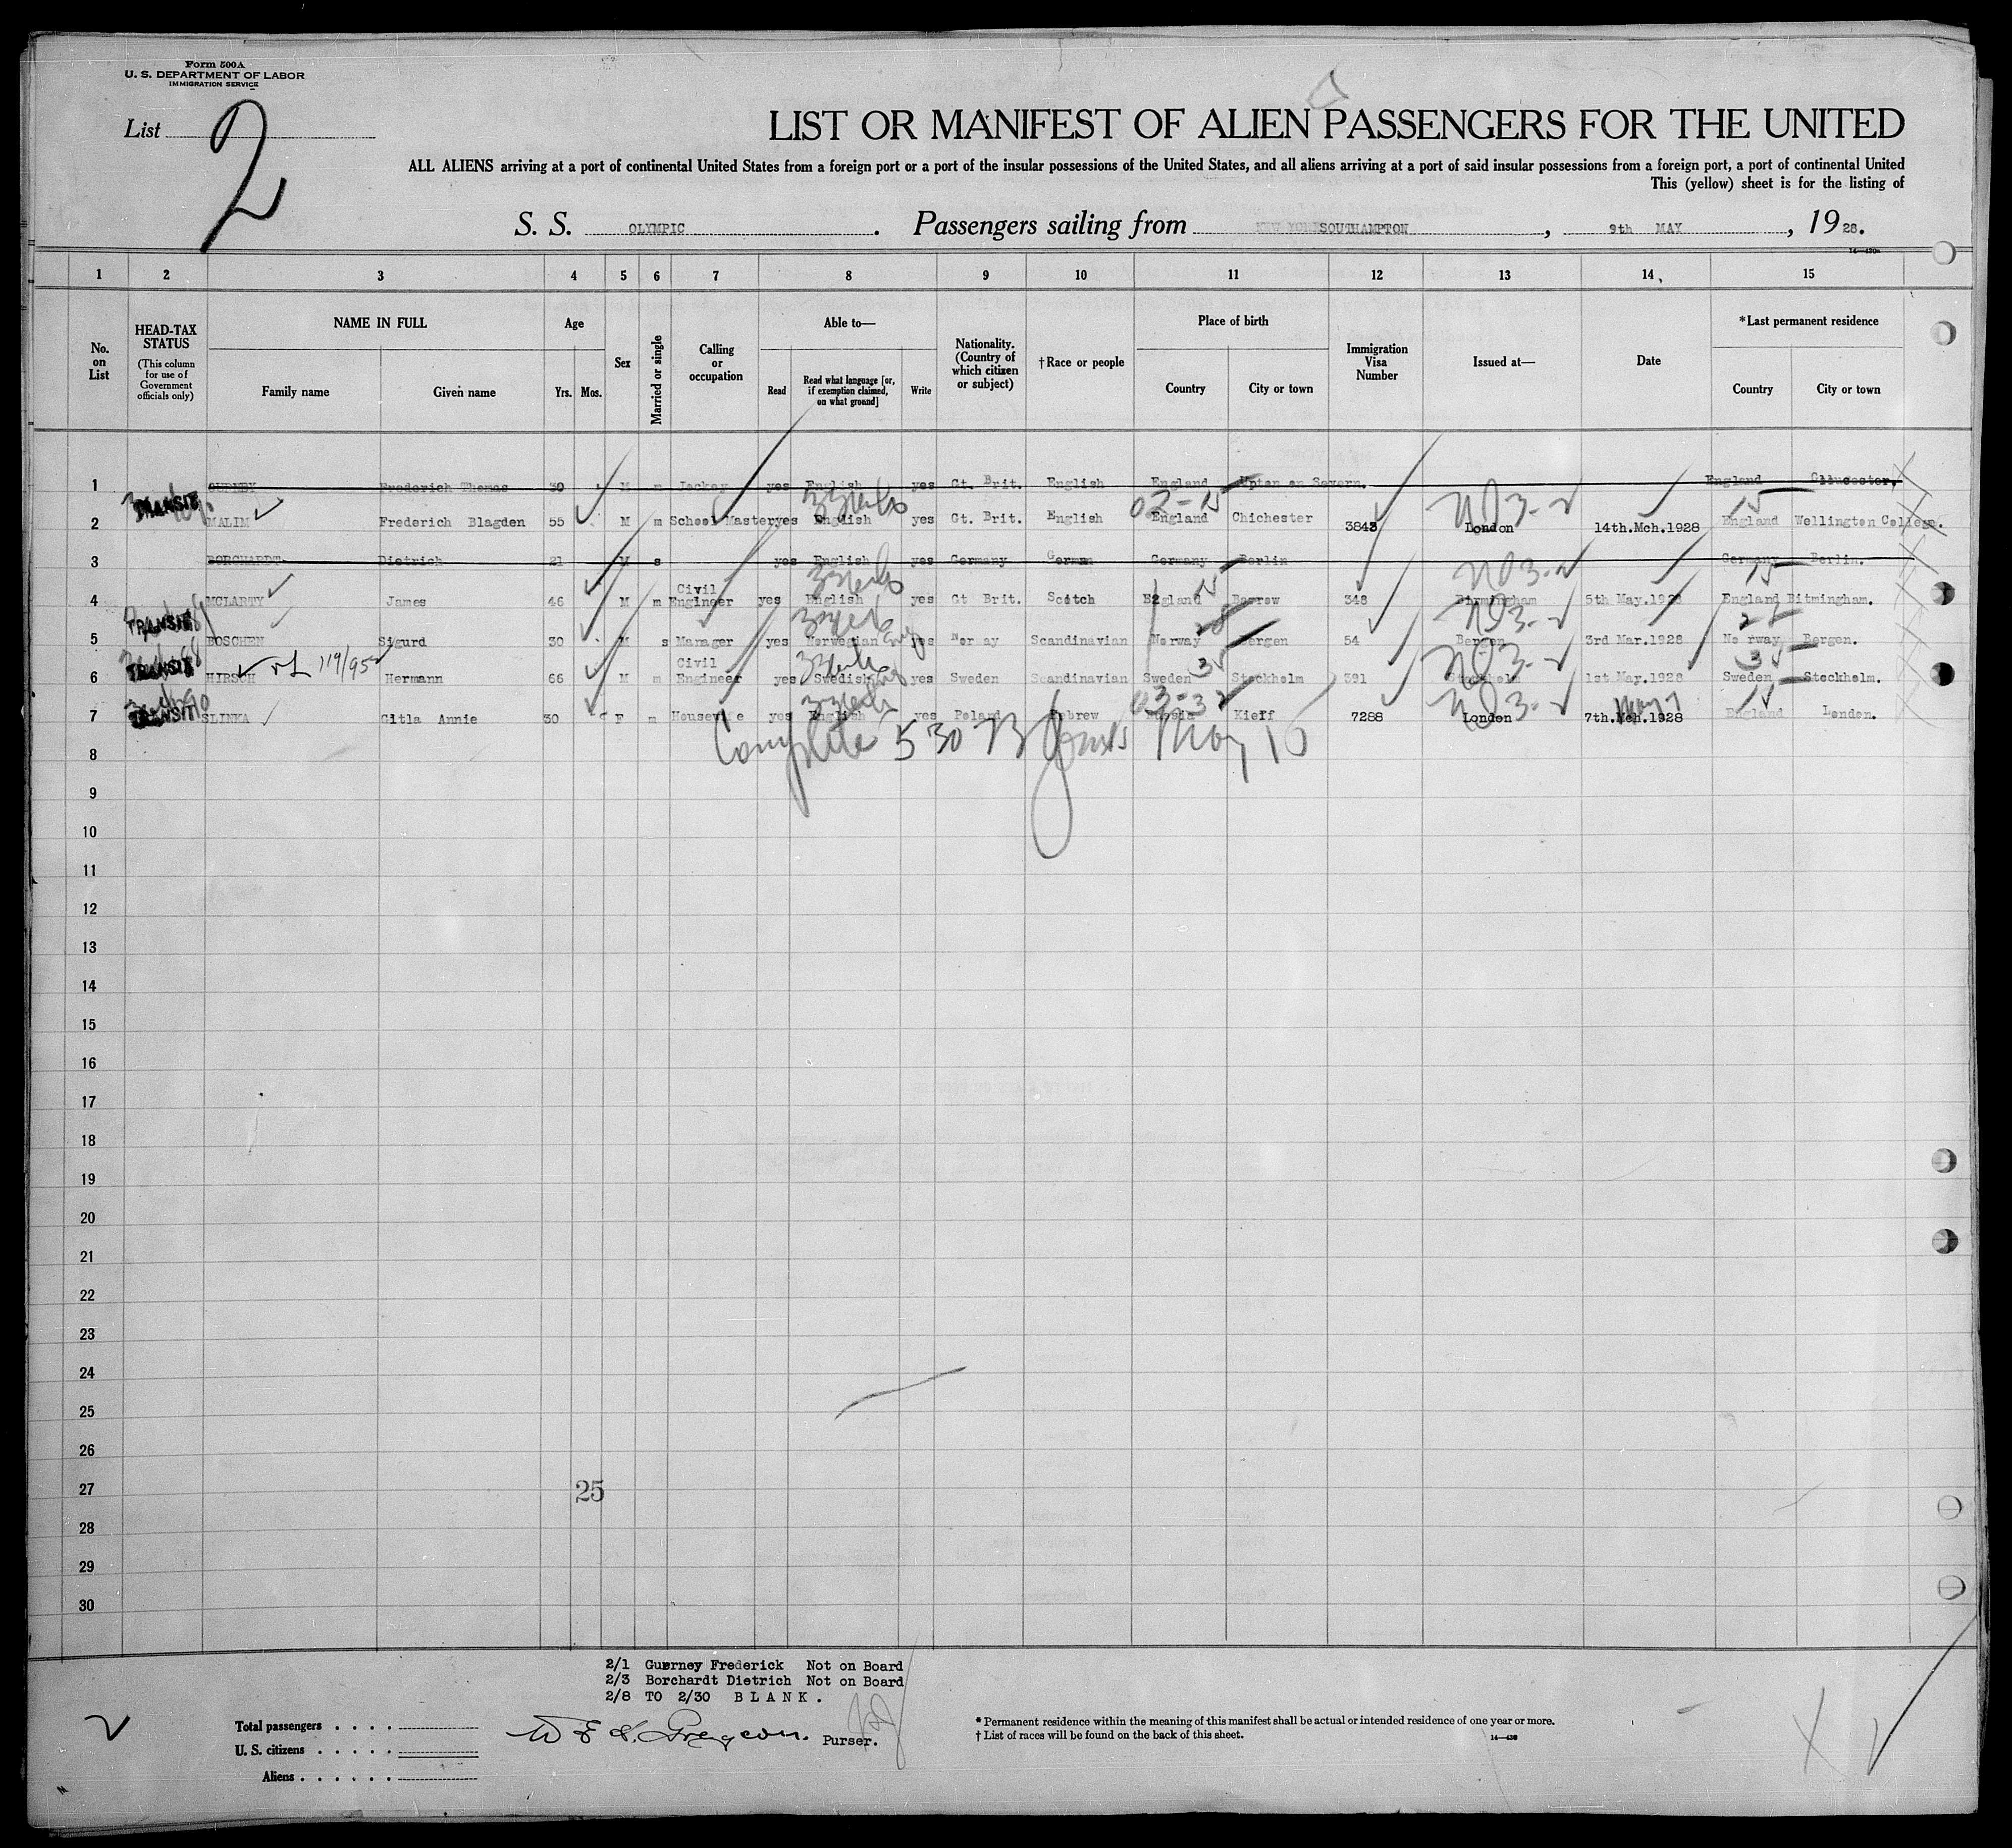 Form 500A
U. S. DEPARTMENT OF LABOR
IMMIGRATION SERVICE
List 2
LIST OR MANIFEST OF ALIEN PASSENGERS FOR THE UNITED
ALL ALIENS arriving at a port of continental United States from a foreign port or a port of the insular possessions of the United States, and all aliens arriving at a port of said insular possessions from a foreign port, a port of continental United
This (yellow) sheet is for the listing of
S. S. OLYMPIC. Passengers sailing from SOUTHAMPTON, 9th MAY, 1928.
1 2 3 4 5 6 7 8 9 10 11 12 13 14 15
No. on List
HEAD-TAX STATUS (This column for use of Government officials only)
NAME IN FULL
Family name Given name
Age
Yrs. Mos.
Sex
Married or single
Calling or occupation
Able to—
Read Read what language [or, if exemption claimed, on what ground] Write
Nationality. (Country of which citizen or subject)
†Race or people
Place of birth
Country City or town
Immigration Visa Number
Issued at—
Date
*Last permanent residence
Country City or town
1 Frederich Thomas 39 M m Jockey yes English yes Gt. Brit. English England Upton on Severn. England Gloucester,
2 TRANSIT MALIM Frederich Blagden 55 M m School Master yes English yes Gt. Brit. English England Chichester 3843 London 14th.Mch.1928 England Wellington College.
3 BORCHARDT Dietrich 21 M s yes English yes Germany German Germany Berlin Germany Berlin.
4 MCLARTY James 46 M m Civil Engineer yes English yes Gt Brit. Scotch England Barrow 348 Birmingham 5th May.1928 England Bitmingham.
5 TRANSIT BOSCHEN Sigurd 30 M s Manager yes Norwegian yes Nor ay Scandinavian Norway Bergen 54 Bergen 3rd Mar.1928 No rway Bergen.
6 TRANSIT HIRSCH 119/95 Hermann 66 M m Civil Engineer yes Swedish yes Sweden Scandinavian Sweden Stockholm 391 Stockholm 1st May.1928 Sweden Stockholm.
7 TRANSIT SLINKA Gitla Annie 30 F m Housewife yes English yes Poland Hebrew Russia Kieff 7288 London 7th.Mch.1928 May 7 England London.
8 Complete 530 May 16
9
10
11
12
13
14
15
16
17
18
19
20
21
22
23
24
25
26
27 25
28
29
30
2/1 Guerney Frederick Not on Board
2/3 Borchardt Dietrich Not on Board
2/8 TO 2/30 BLANK.
Total passengers . . . .
U. S. citizens . . . . .
Aliens . . . . . .
Purser.
* Permanent residence within the meaning of this manifest shall be actual or intended residence of one year or more.
† List of races will be found on the back of this sheet.